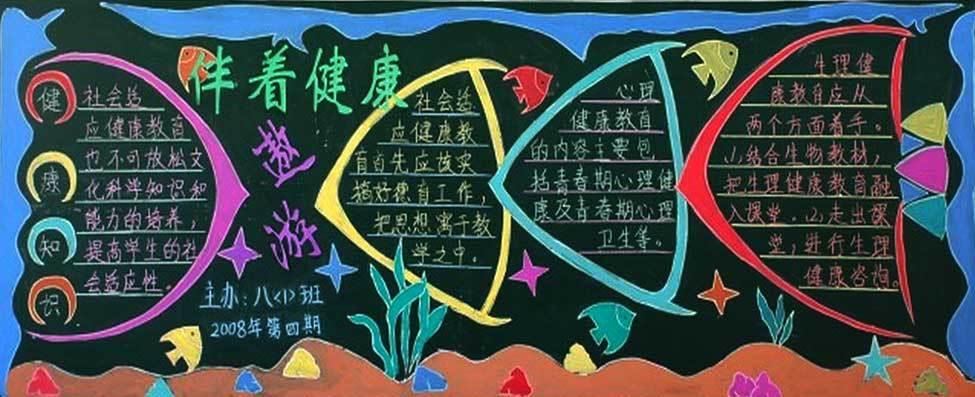 伴着健康
遨游
健
康
知
识
社会适
应健康教育
也不可放松文
化科学知识和
能力的培养,
提高学生的社
会适应性。
主办:八<1>班
2008年第四期
社会适
应健康教
育首先应该实
搞好德育工作,
把思想寓于教
学之中。
心理
健康教育
的内容主要包
括青春期心理健
康及青春期心理
卫生等。
生理健
康教育应从
两个方面着手。
(1)结合生物教材,
把生理健康教育融
入课堂.(2)走出课
堂,进行生理
健康咨询。